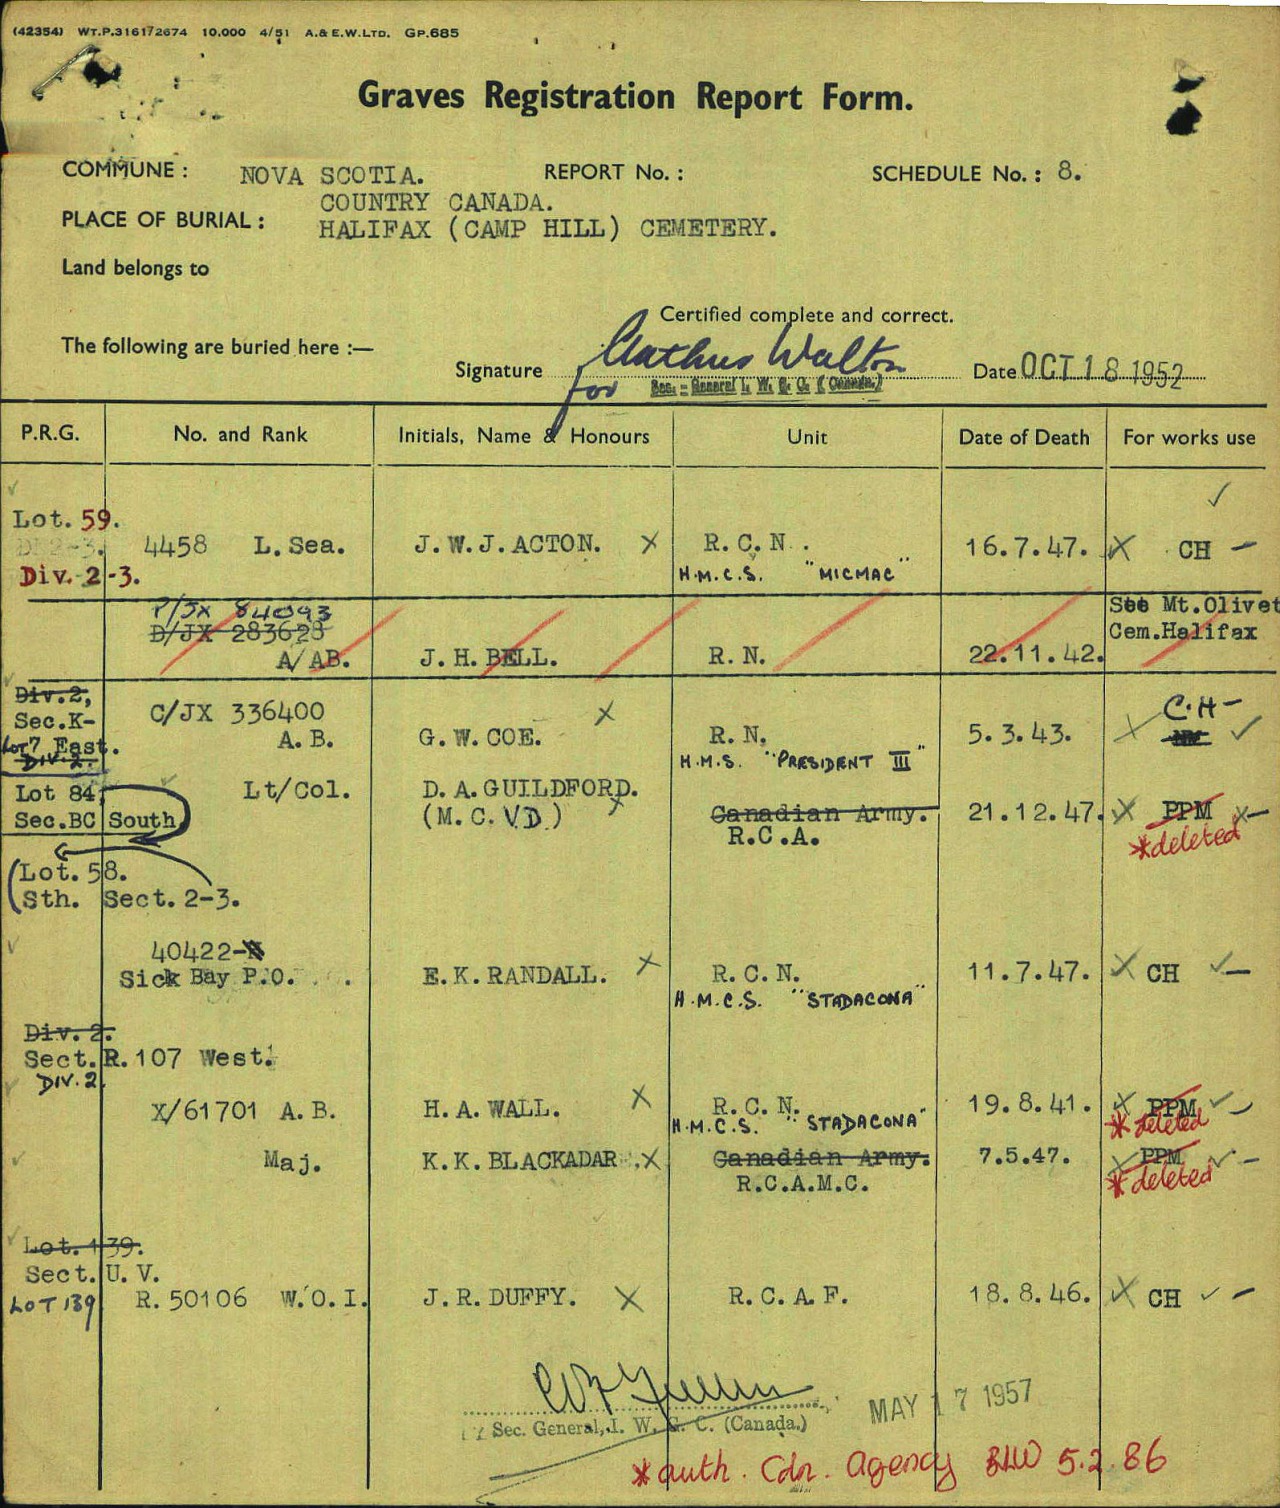 (42354) WT.P.316172674 10,000 4/51 A.& E.W.LTD. GP.685
Graves Registration Report Form.
COMMUNE : NOVA SCOTIA. REPORT No. : SCHEDULE No. : 8.
COUNTRY CANADA.
PLACE OF BURIAL : HALIFAX (CAMP HILL) CEMETERY.
Land belongs to
Certified complete and correct.
The following are buried here :—
Signature Walton Date OCT 18 1952
for Sec.-General I. W. G. C. (Canada.)
P.R.G. No. and Rank Initials, Name & Honours Unit Date of Death For works use
Lot. 59.
4458 L. Sea. J. W. J. ACTON. X R. C. N. 16. 7. 47. X CH –
Div. 2-3. H.M.C.S. "MICMAC"
P/JX 84093 See Mt.Olivet
D/JX 283628 Cem.Halifax
A/AB. J. H. BELL. R. N. 22. 11. 42.
Div. 2,
Sec.K- C/JX 336400 X C.H –
Lot 7 East. A. B. G. W. COE. R. N. 5. 3. 43. X
DIV. 2. H.M.S. "PRESIDENT III"
Lot 84, Lt/Col. D. A. GUILDFORD.
Sec.BC South (M. C. V.D.) X Canadian Army. 21. 12. 47. X PPM X–
R.C.A. *deleted
(Lot. 58.
(Sth. Sect. 2-3.
40422-N
Sick Bay P.O. E. K. RANDALL. X R. C. N. 11. 7. 47. X CH –
H.M.C.S. "STADACONA"
Div. 2.
Sect. R. 107 West.
DIV. 2.
X/61701 A. B. H. A. WALL. X R. C. N. 19. 8. 41. X PPM
H.M.C.S. "STADACONA" *deleted
Maj. K. K. BLACKADAR. X Canadian Army. 7. 5. 47. X PPM –
R.C.A.M.C. *deleted
Lot. 139.
Sect. U. V.
LOT 139 R. 50106 W. O. I. J. R. DUFFY. X R. C. A. F. 18. 8. 46. X CH –
Sec. General, I. W. G. C. (Canada.) MAY 17 1957
*auth. Cdn. Agency BLW 5.2.86